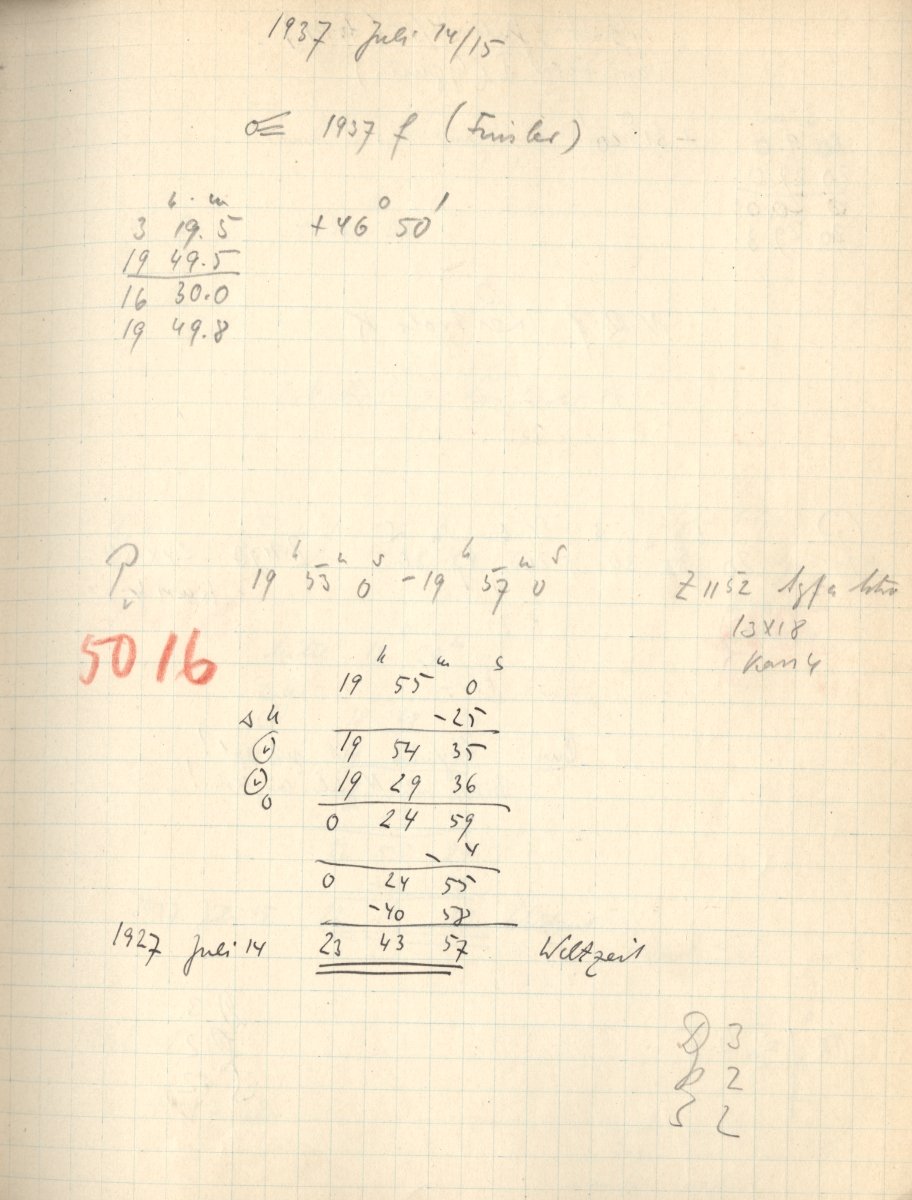 1937 Juli 14/15
☄ 1937 f (Finsler)
h m
3 19.5 +46° 50'
19 49.5
16 30.0
19 49.8
19h 53m 0s - 19h 57m 0s
Z 1152 Agfa
13x18
5016
19h 55m 0s
-25
19 54 35
19 29 36
0 24 59
- 4
0 24 55
-40 58
1927 Juli 14 23 43 57 Weltzeit
3
2
2